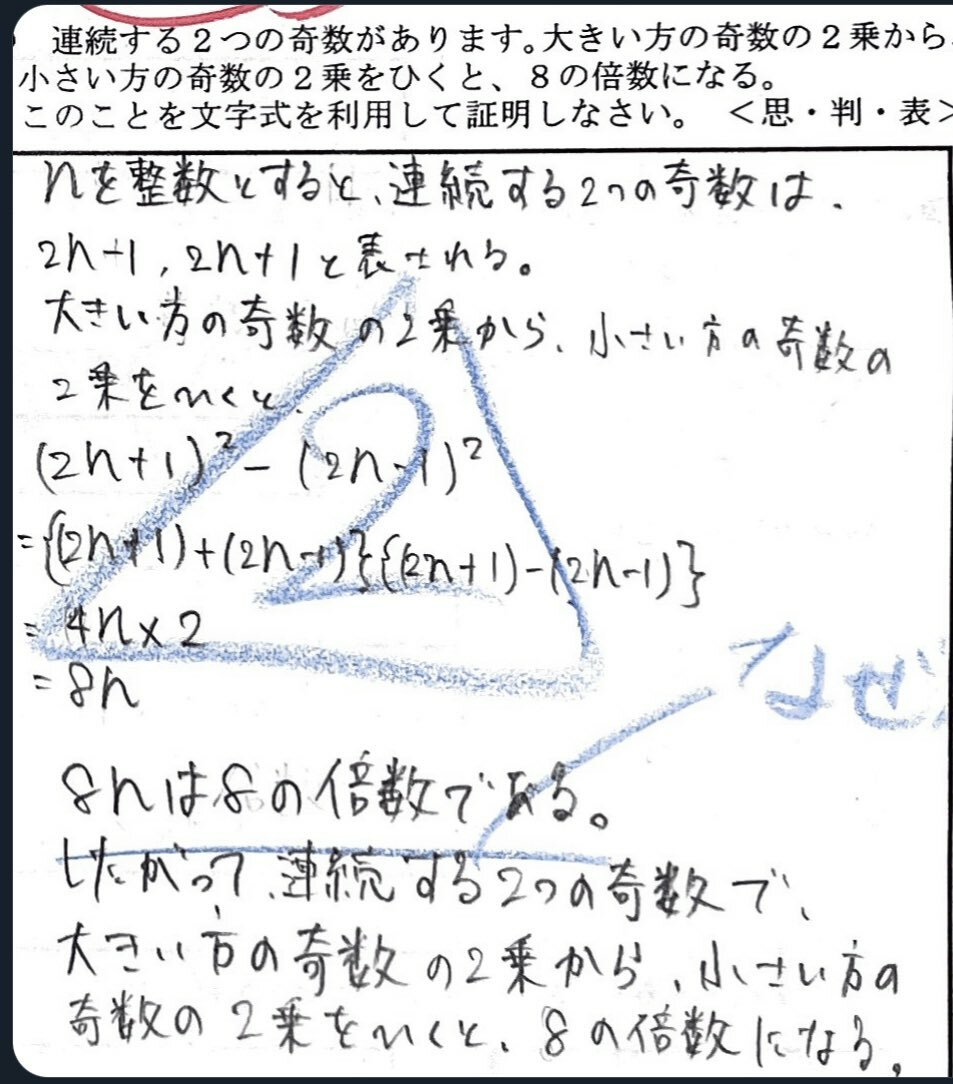 連続する２つの奇数があります。大きい方の奇数の２乗から
小さい方の奇数の２乗をひくと、８の倍数になる。
このことを文字式を利用して証明しなさい。 ＜思・判・表＞
nを整数とすると、連続する2つの奇数は、
2n-1, 2n+1と表される。
大きい方の奇数の2乗から、小さい方の奇数の
2乗をひくと、
(2n+1)² - (2n-1)²
={(2n+1)+(2n-1)}{(2n+1)-(2n-1)}
= 4n×2
= 8n
2
なぜ
8nは8の倍数である。
したがって、連続する2つの奇数で、
大きい方の奇数の2乗から、小さい方の
奇数の2乗をひくと、8の倍数になる。